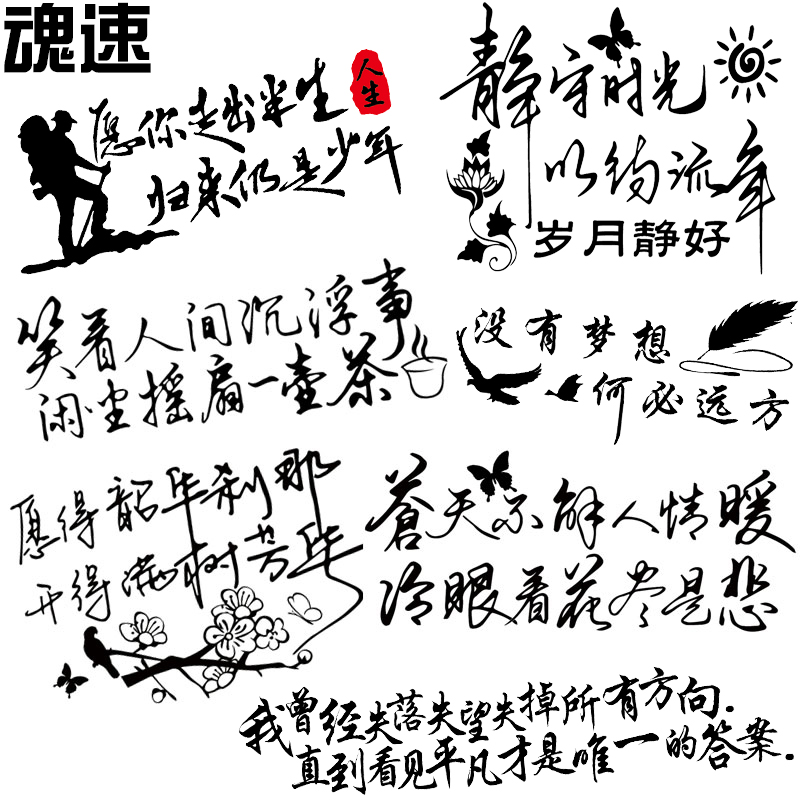 魂速
愿你走出半生
人生
归来仍是少年
静守时光
以约流年
岁月静好
笑看人间沉浮事
闲坐摇扇一壶茶
没有梦想
何必远方
愿得韶华刹那
开得满树芳华
苍天不解人情暖
冷眼看花尽是悲
我曾经失落失望失掉所有方向.
直到看见平凡才是唯一的答案.